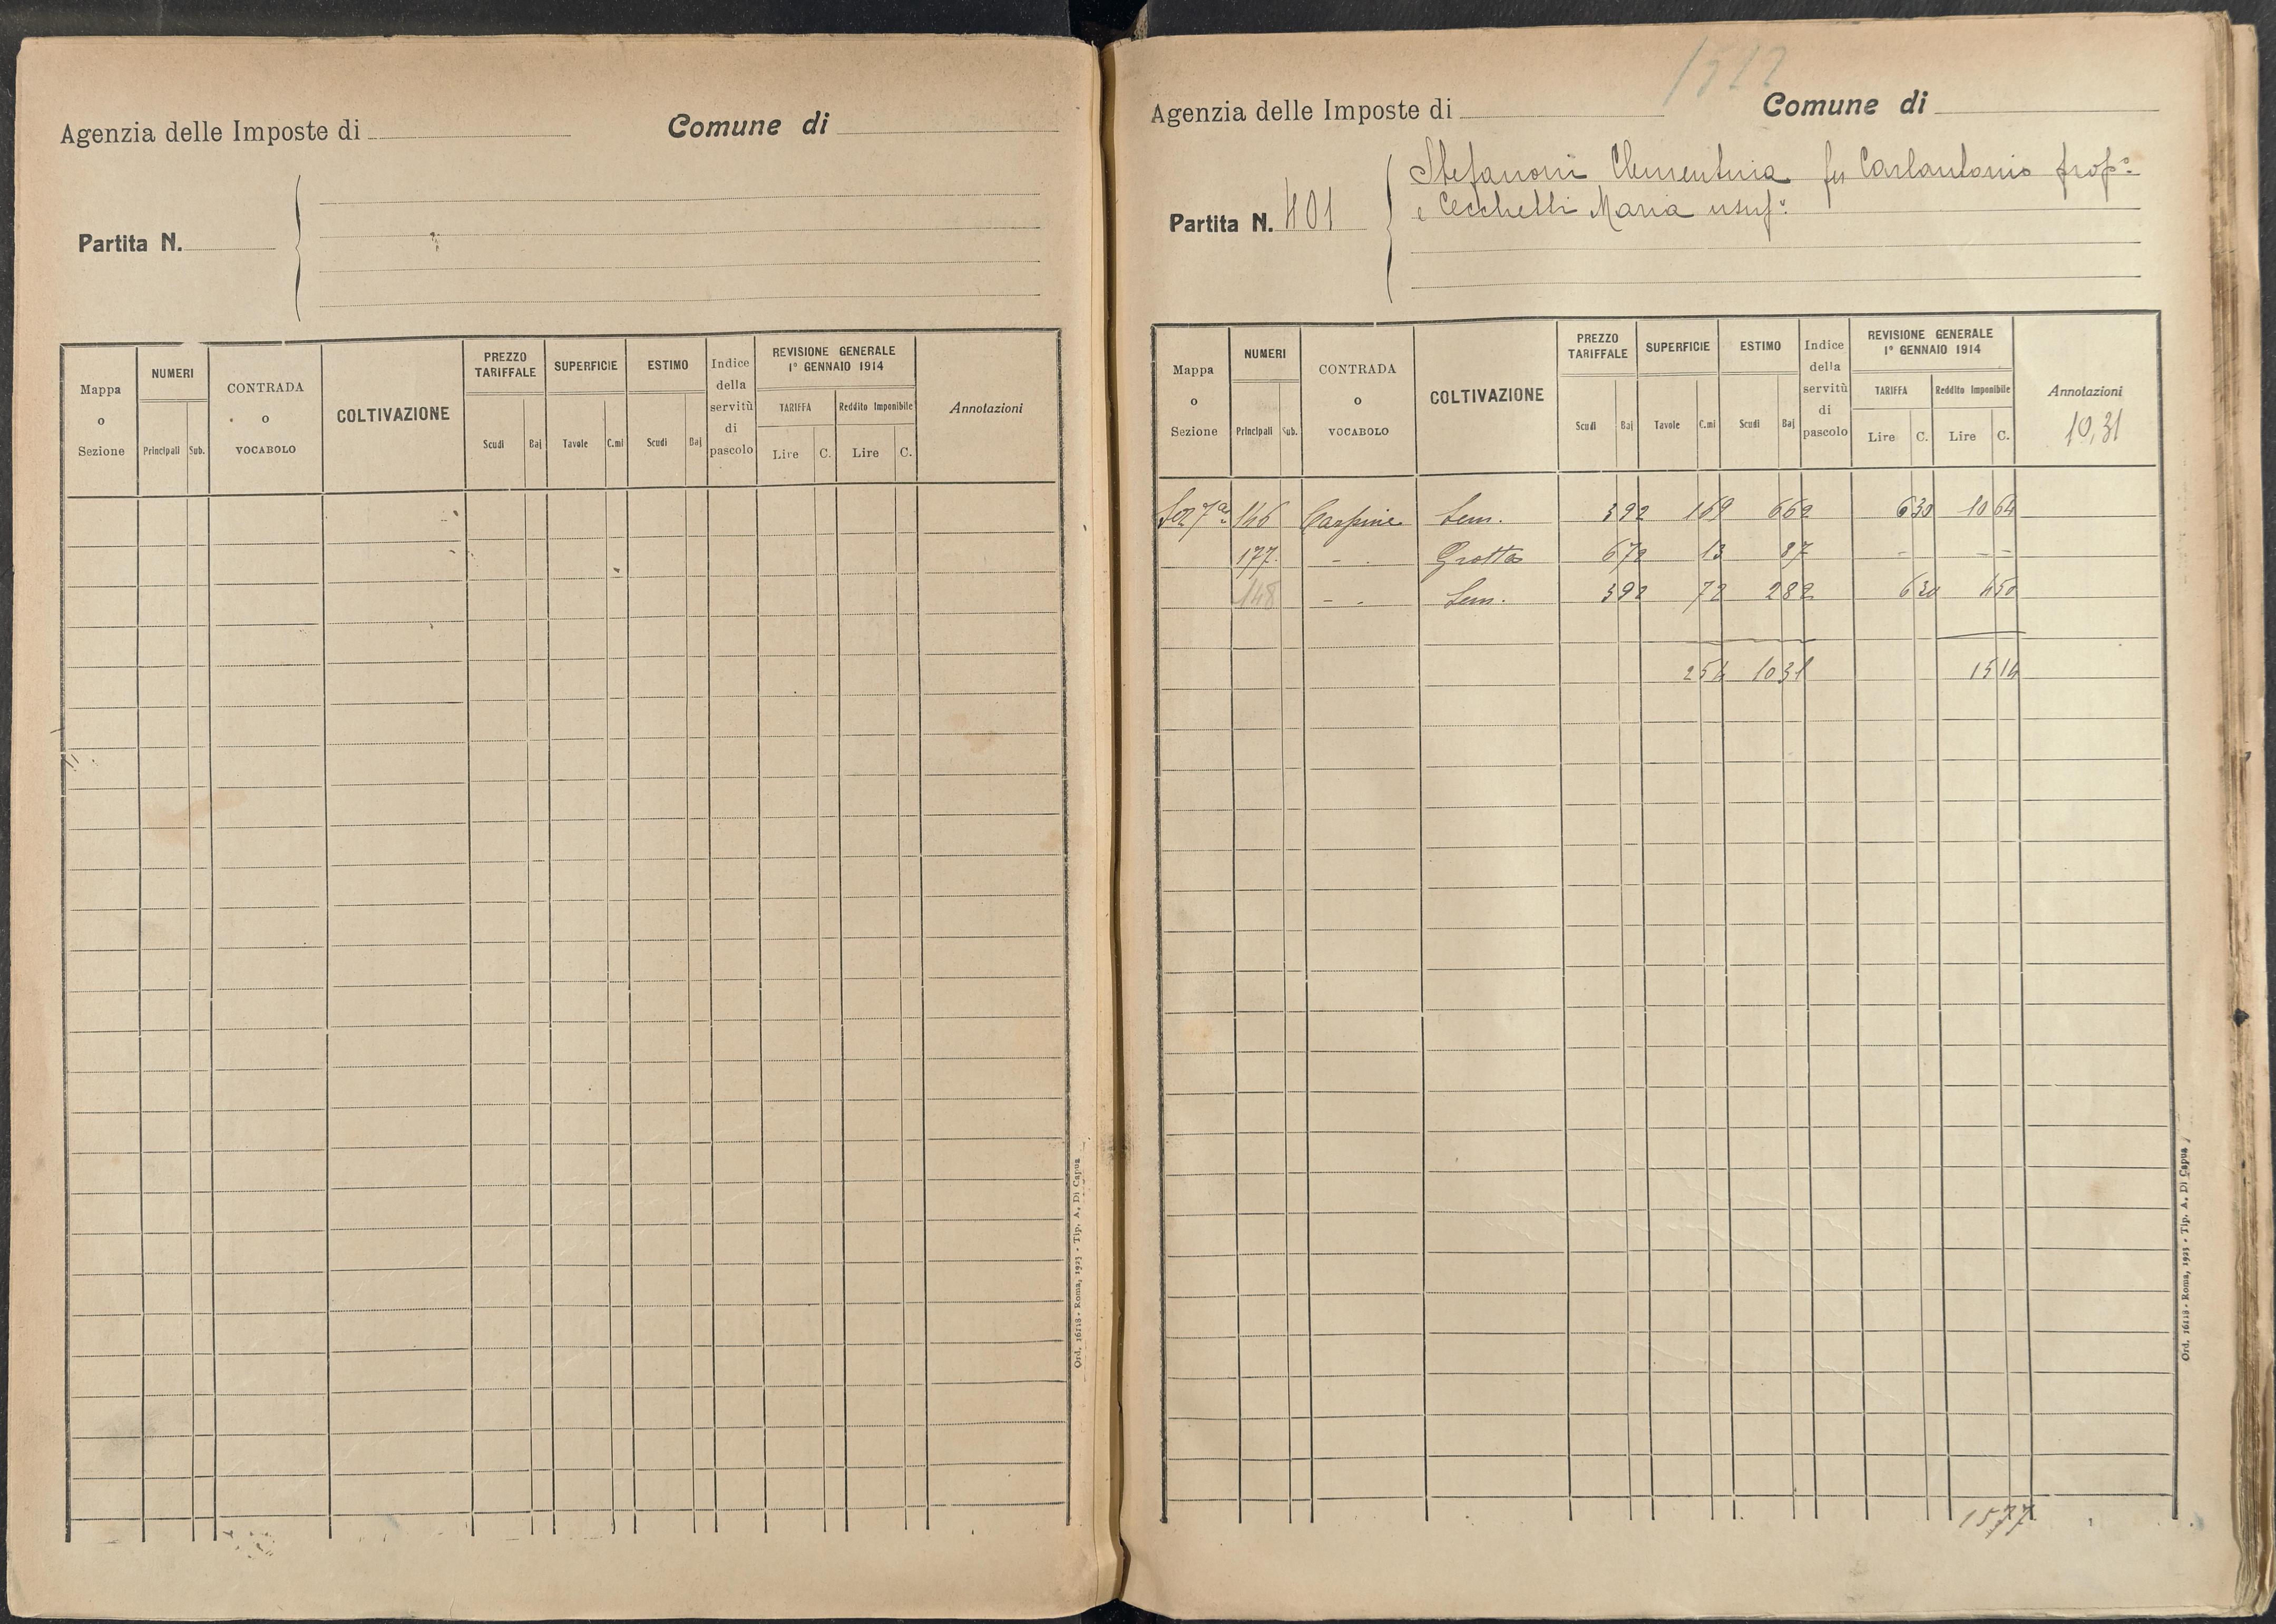 Agenzia delle Imposte di Comune di
Partita N.
Mappa o Sezione
NUMERI
Principali Sub.
CONTRADA o VOCABOLO
COLTIVAZIONE
PREZZO TARIFFALE
Scudi Baj
SUPERFICIE
Tavole C.mi
ESTIMO
Scudi Baj
Indice della servitù di pascolo
REVISIONE GENERALE
1° GENNAIO 1914
TARIFFA Reddito Imponibile
Lire C. Lire C.
Annotazioni
Ord. 16118 - Roma, 1925 - Tip. A. Di Capua
Agenzia delle Imposte di Comune di
Stefanoni Clementina fu Carlantonio prop:
Partita N. 401
e Cecchelli Maria usuf:
Mappa o Sezione
NUMERI
Principali Sub.
CONTRADA o VOCABOLO
COLTIVAZIONE
PREZZO TARIFFALE
Scudi Baj
SUPERFICIE
Tavole C.mi
ESTIMO
Scudi Baj
Indice della servitù di pascolo
REVISIONE GENERALE
1° GENNAIO 1914
TARIFFA Reddito Imponibile
Lire C. Lire C.
Annotazioni
10,31
Sez 7a 146 Carpine Sem. 392 169 662 630 10 64
177 - . Grotta 672 13 87 - - -
148 - . Sem. 392 72 282 630 450
254 1031 15 14
1577
Ord. 16118 - Roma, 1925 - Tip. A. Di Capua